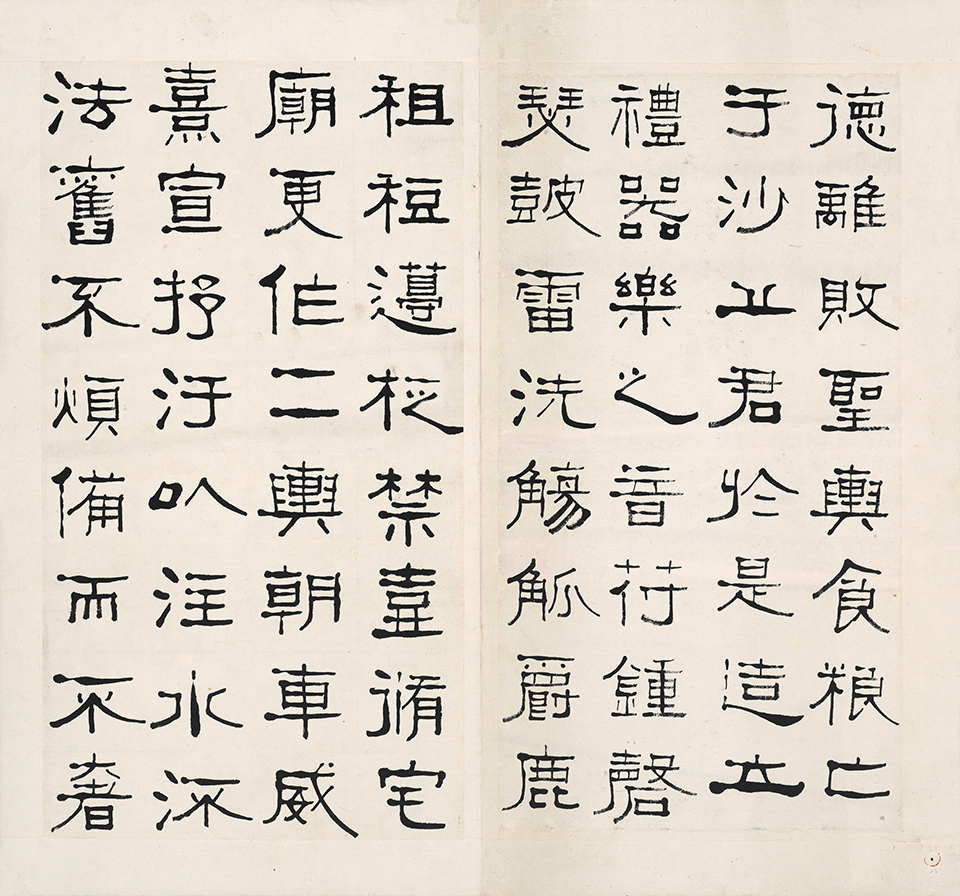 德離敗聖輿食粮亡
于沙丘君於是造立
禮器樂之音苻鍾磬
瑟皷雷洗觴觚爵鹿
柤梪籩柉禁壺脩宅
廟更作二輿朝車威
熹宣抒汙以注水流
法舊不煩備而不奢